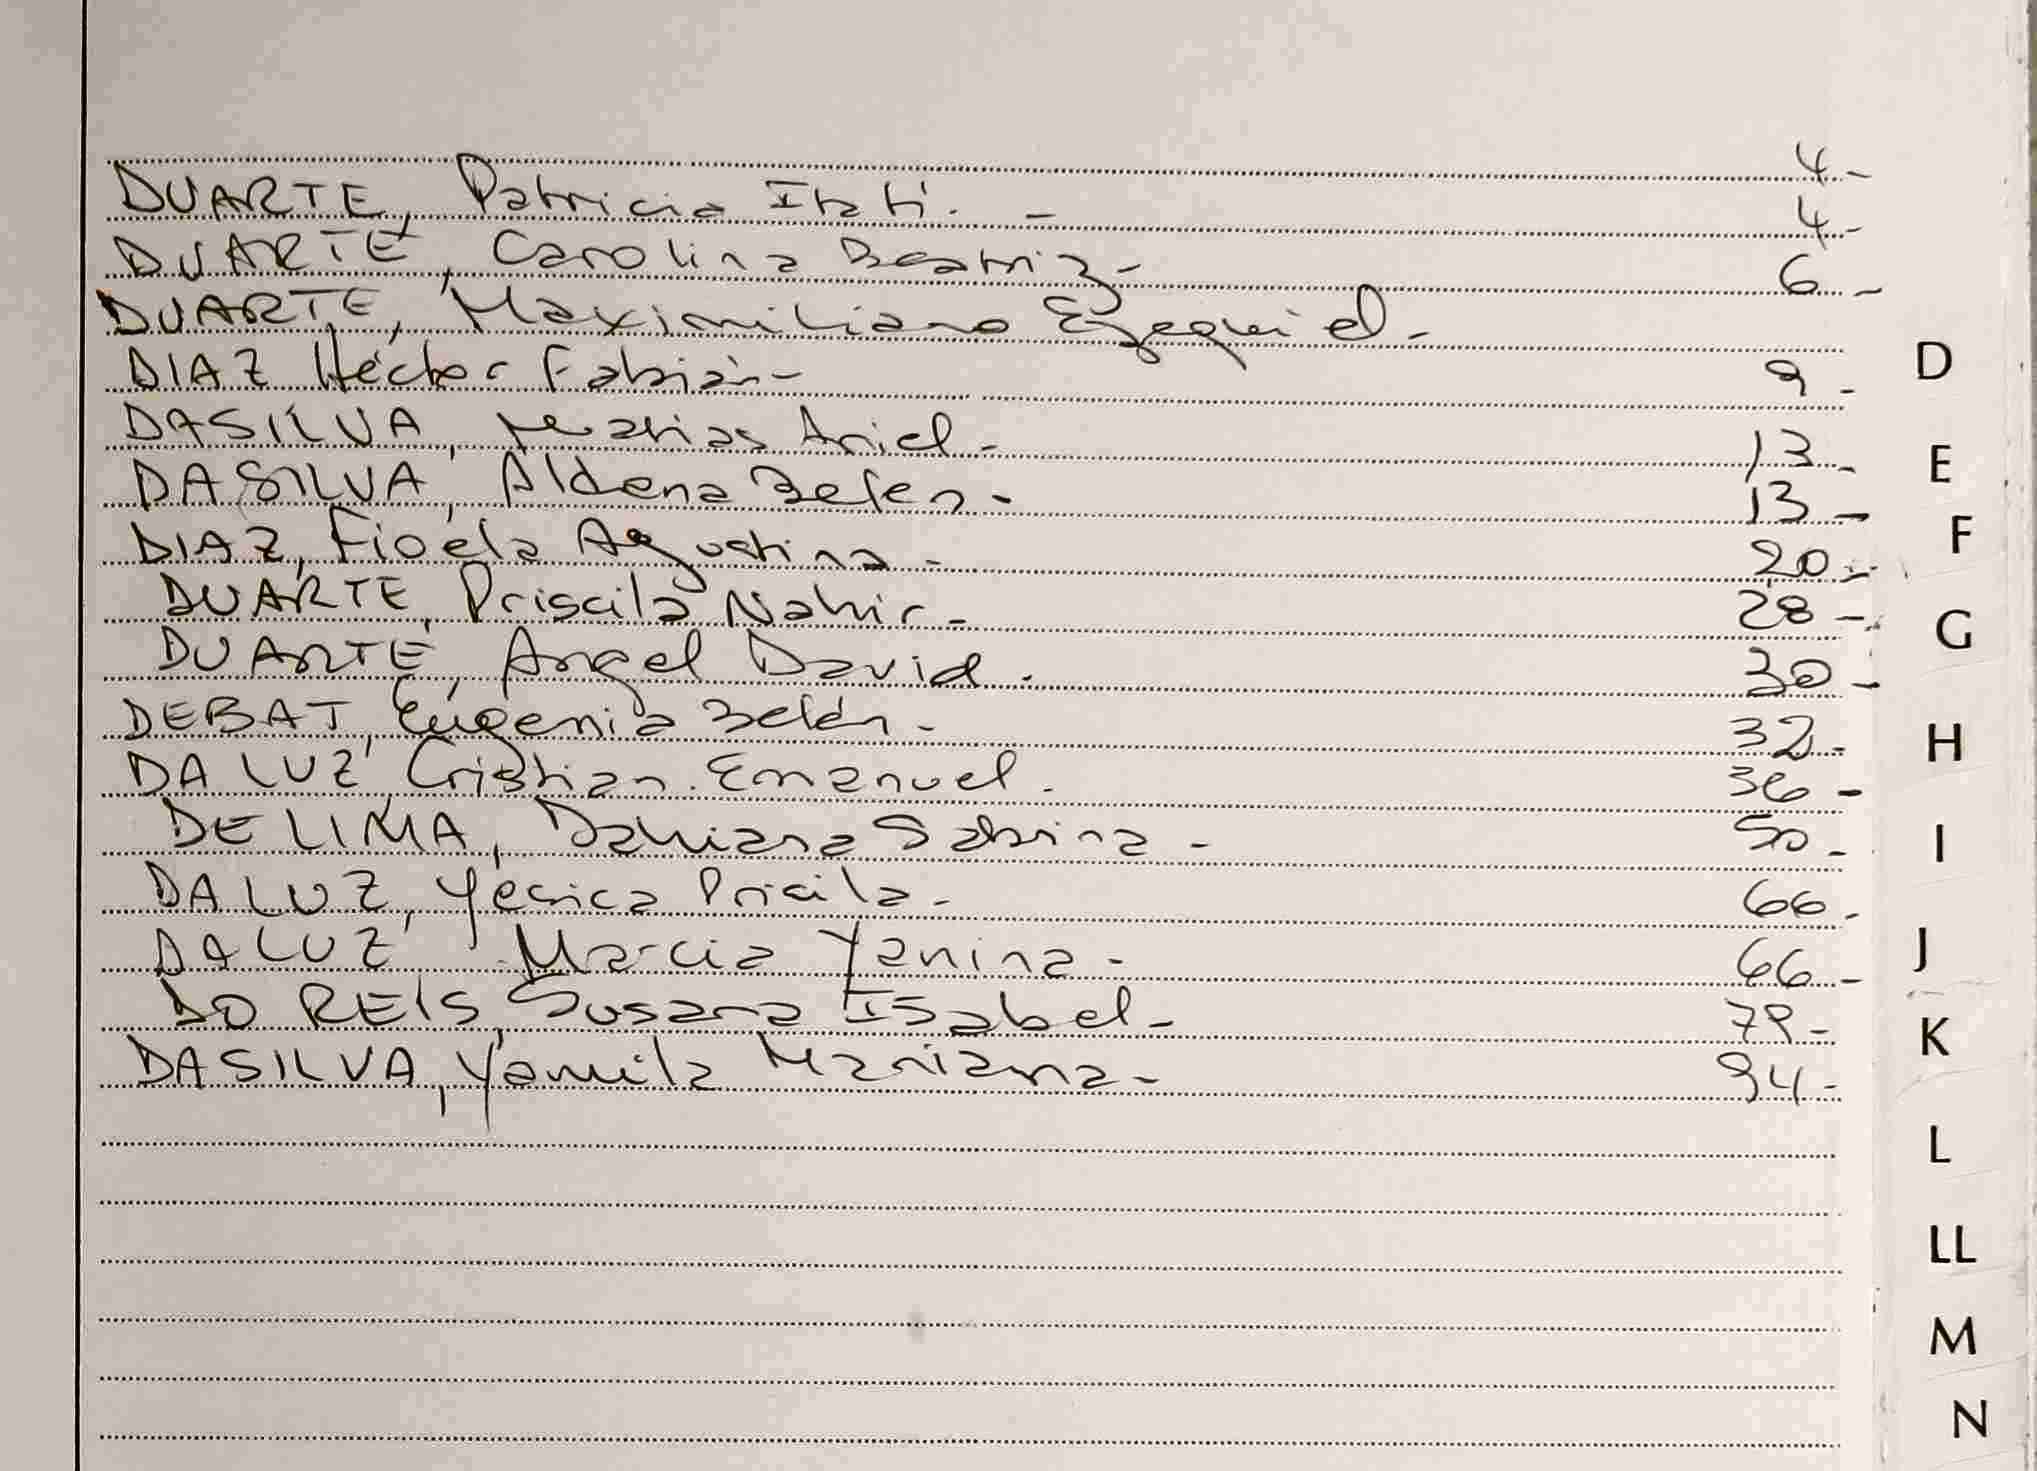 DUARTE, Patricia Itatí. - 4-
DUARTE, Carolina Beatriz- 4-
DUARTE, Maximiliano Ezequiel. 6-
DIAZ Héctor Fabián- 9-
DASILVA, Matias Ariel- 13-
DASILVA, Aldena Belen. 13-
DIAZ, Fioela Agustina- 20-
DUARTE, Priscila Nahir- 28-
DUARTE, Angel David. 30-
DEBAT, Eugenia Belén- 32-
DA LUZ, Cristian Emanuel. 36-
DE LIMA, Dahiana Sabrina- 50-
DA LUZ, Yésica Pricila- 66-
DA LUZ Marcia Yanina- 66-
DO REIS, Susana Isabel- 79-
DASILVA, Yamila Mariana- 94-
D
E
F
G
H
I
J
K
L
LL
M
N